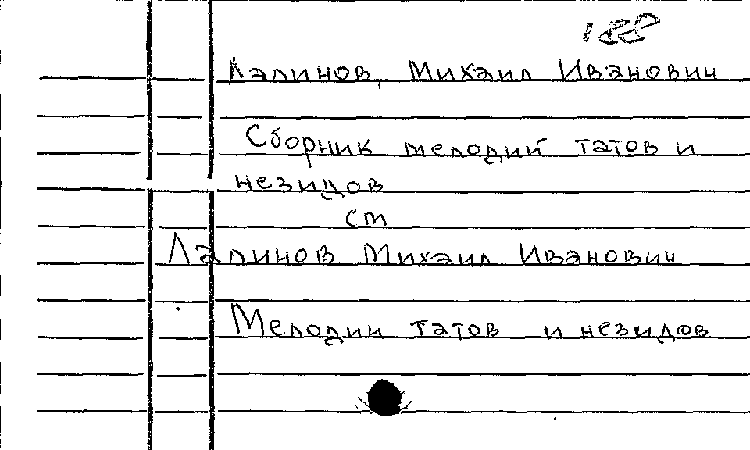 188
Лапинов, Михаил Иванович
Сборник мелодий татов и
незидов
см
Лапинов Михаил Иванович
Мелодии татов и незидов